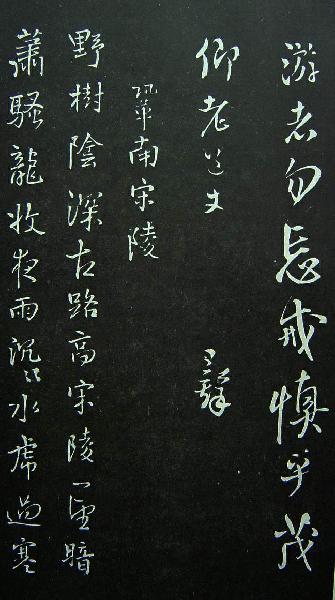 游者勿忘戒慎乎茂
仰老丈
鞏南宋陵
野樹陰深古路高宋陵一望暗
蕭騷龍收夜雨沉沉水虎過寒